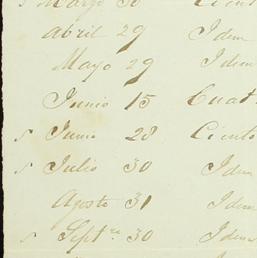 Marzo 30 Cient
Abril 29 Idem
Mayo 29 Idem
Junio 15 Cuat
Junio 28 Ciento
Julio 30 Idem
Agosto 31 Idem
Sept.re 30 Idem